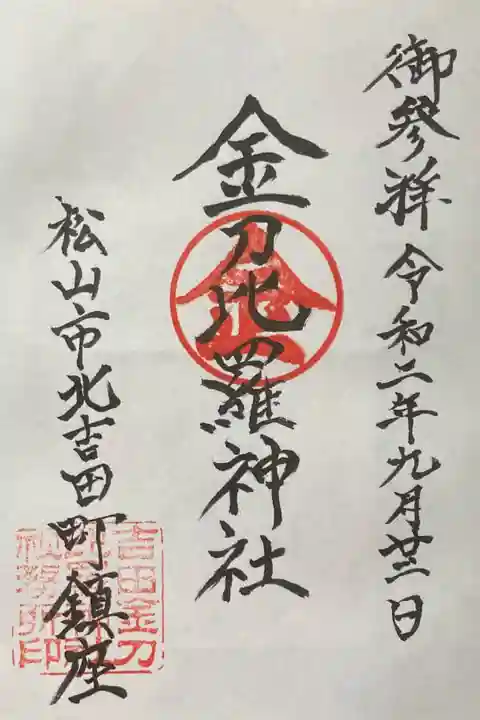 御参拝 令和二年九月廿三日
金刀比羅神社
金
松山市北吉田町鎮座
吉田金刀
社務所印